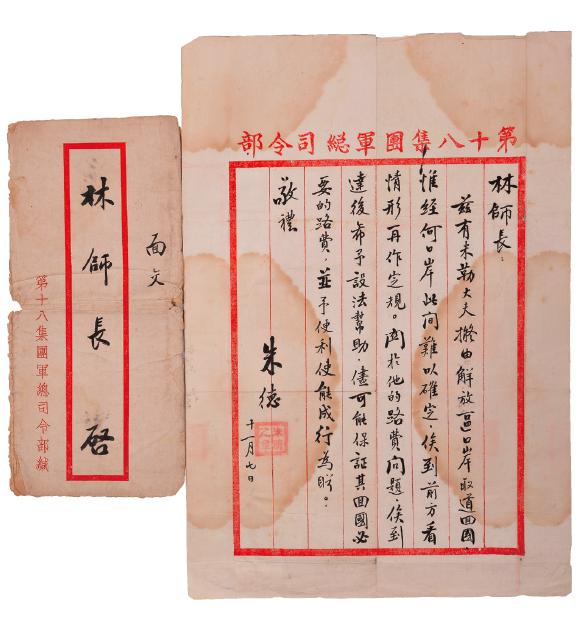 第十八集團軍總司令部
林師長:
茲有米勒大夫擬由解放區口岸取道回國,
惟經何口岸此間難以確定,俟到前方看
情形再作定規。關於他的路費問題,俟到
達後希予設法幫助,儘可能保証其回國必
要的路費,並予便利使能成行為盼。
敬禮
朱德
十一月七日
面交
林師長啓
第十八集團軍總司令部緘